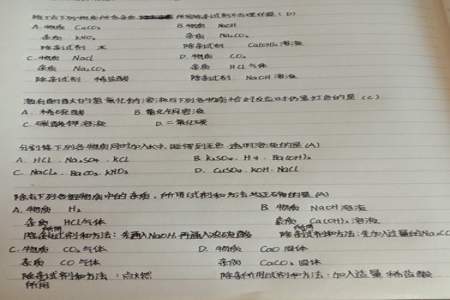 除去下列物质所含杂质 所用除杂试剂不合理的是（D）
A. 物质 CaCO₃ B. 物质 NaOH
杂质 KNO₃ 杂质 Na₂CO₃
除杂试剂 水 除杂试剂 Ca(OH)₂溶液
C. 物质 NaCl D. 物质 CO₂
杂质 Na₂CO₃ 杂质 HCl气体
除杂试剂 稀盐酸 除杂试剂 NaOH溶液
氢氧化钠溶液 下列各物质恰好 反应 的是（C）
A. 稀硫酸 B. 氧化钙溶液
C. 碳酸钾溶液 D. 二氧化碳
分别将下列各物质同时加入水中 能得到无色 透明溶液的是（A）
A. HCl . Na₂SO₄ . KCl B. K₂SO₄ . Ba(OH)₂
C. NaCl . KNO₃ D. CuSO₄ . KOH . NaCl
除去下列各组物质中的杂质，所用试剂和方法 的是（A）
A. 物质 H₂ B. 物质 NaOH溶液
杂质 HCl气体 杂质 Ca(OH)₂溶液
除杂 试剂和方法：先通入NaOH, 再通入浓硫酸 除杂 试剂和方法：先加入过量的Na₂CO₃
C. 物质 CO₂气体 D. 物质 CaO固体
杂质 CO气体 杂质 CaCO₃固体
除杂试剂和方法：点燃 除杂所用试剂和方法：加入适量稀盐酸
所用